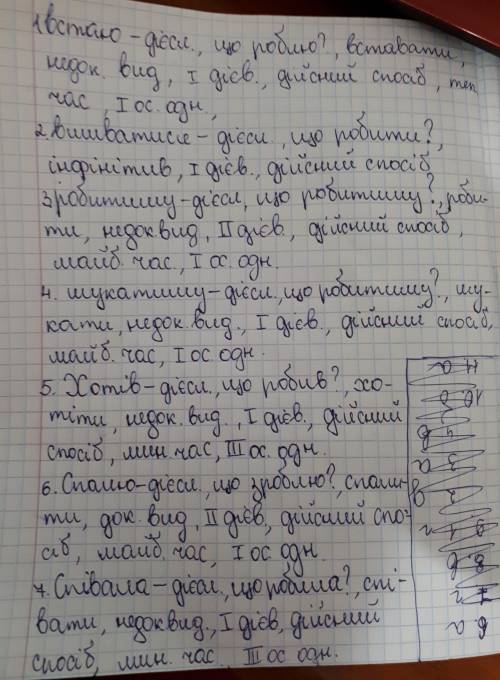 1. встаю – дієсл., що роблю?, вставати,
недок. вид, I дієв., дійсний спосіб, теп.
час, I ос. одн.,
2. – дієсл., що робити?,
інфінітив, I дієв., дійсний спосіб
3. робитиму – дієсл., що робитиму?, роби-
ти, недок. вид, II дієв., дійсний спосіб,
майб. час, I ос. одн.
4. шукатиму – дієсл., що робитиму?, шу-
кати, недок. вид., I дієв., дійсний спосіб,
майб. час, I ос. одн.
5. Хотів – дієсл., що робив?, хо-
тіти, недок. вид., I дієв., дійсний
спосіб, мин. час, III ос. одн.
6. Спалю – дієсл., що зроблю?, спали-
ти, док. вид, II дієв., дійсний спо-
сіб, майб. час, I ос. одн.
7. Співала – дієсл., що робила?, спі-
вати, недок. вид., I дієв., дійсний
спосіб, мин. час, III ос. одн.
6. а